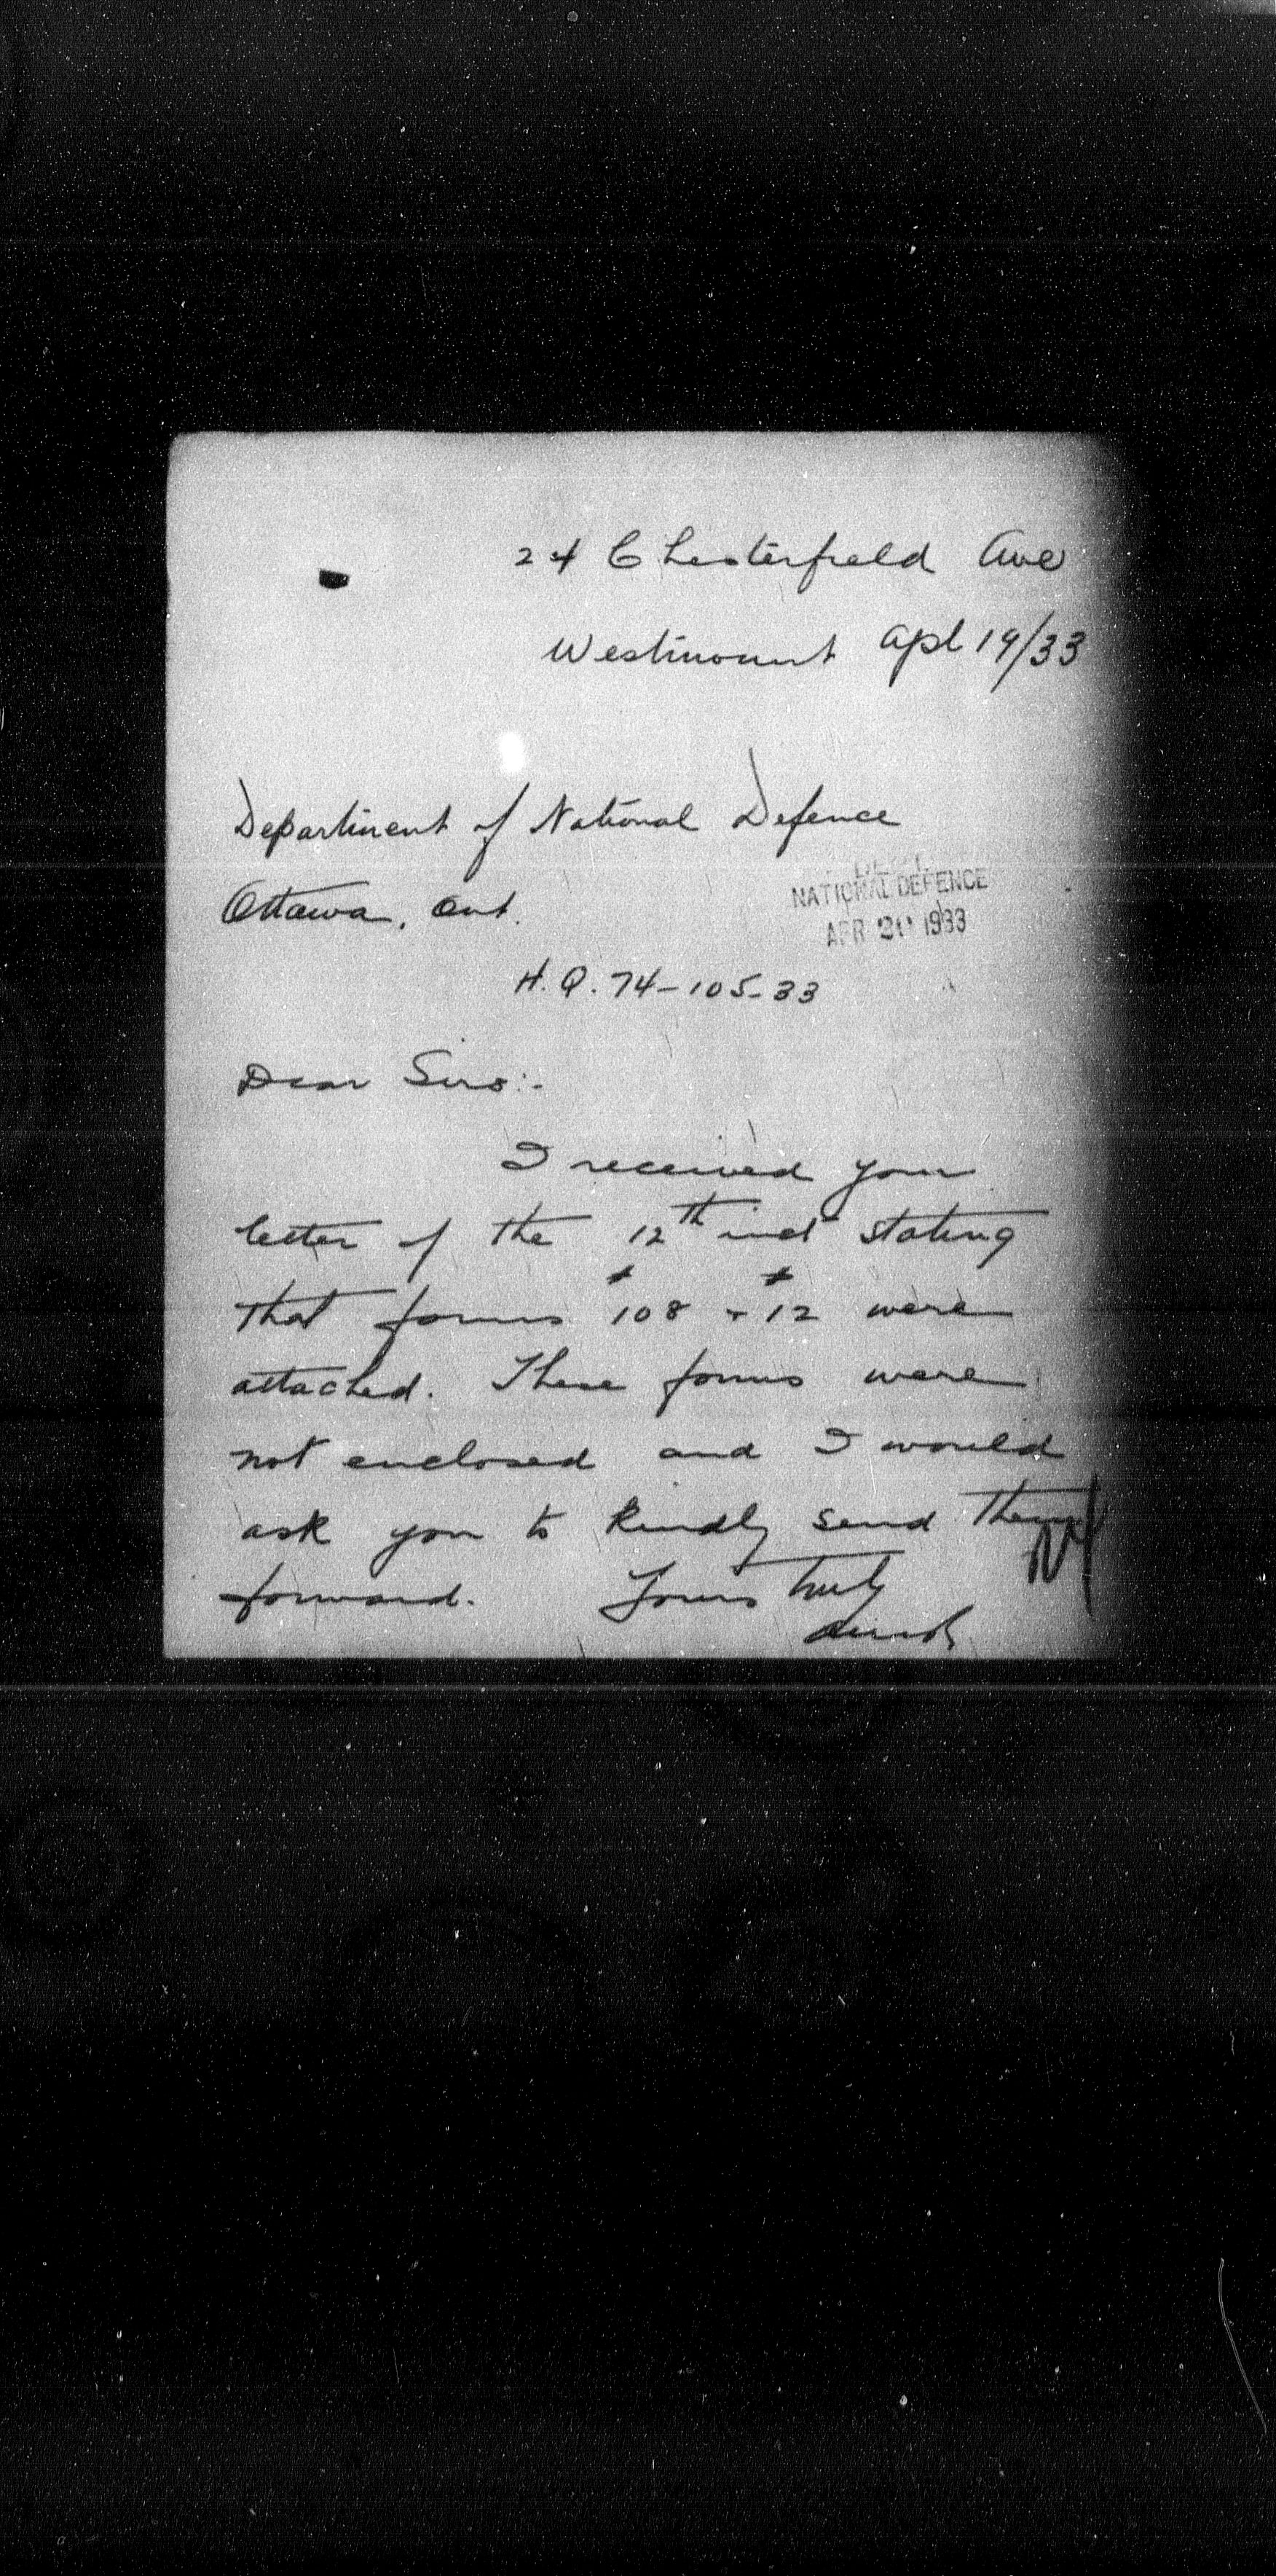 24 Chesterfield Ave
Westmount Apl 19/33
Department of National Defence
Ottawa, Ont.
NATIONAL DEFENCE
APR 20 1933
H.Q. 74-105-33
Dear Sirs:-
I received your
letter of the 12th inst stating
that forms 108 + 12 were
attached. These forms were
not enclosed and I would
ask you to kindly send them
forward. Yours truly